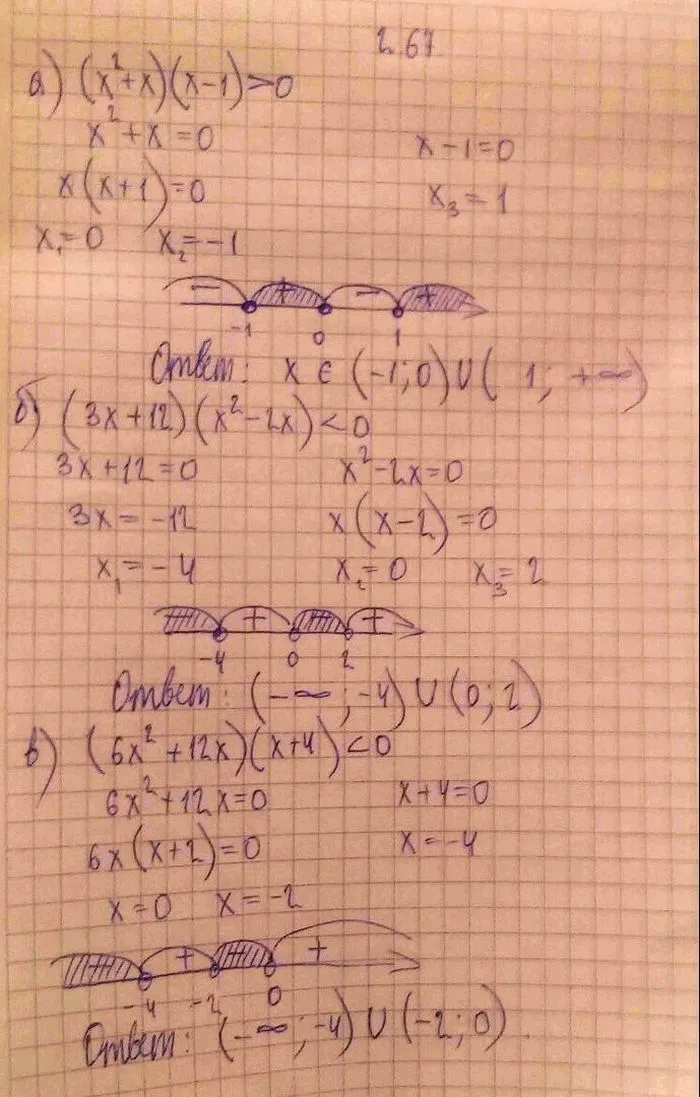 2.67
а) (x²+x)(x-1)>0
x²+x=0 x-1=0
x(x+1)=0 x₃=1
x₁=0 x₂=-1
- + - +
-1 0 1
Ответ: x ∈ (-1;0)∪( 1; +∞)
б) (3x+12)(x²-2x)<0
3x+12=0 x²-2x=0
3x=-12 x(x-2)=0
x₁=-4 x₂=0 x₃=2
+ +
-4 0 2
Ответ: (-∞;-4)∪(0;2)
в) (6x²+12x)(x+4)<0
6x²+12x=0 x+4=0
6x(x+2)=0 x=-4
x=0 x=-2
+ +
-4 -2 0
Ответ: (-∞;-4)∪(-2;0).